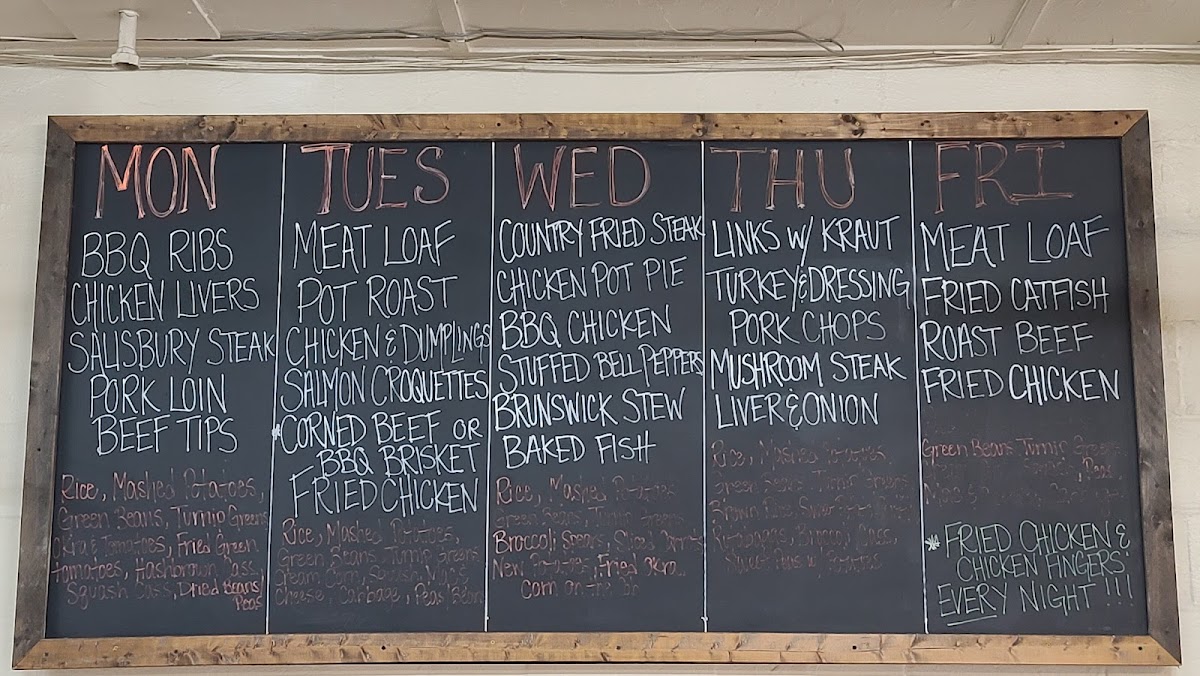 MON
BBQ RIBS
CHICKEN LIVERS
SALISBURY STEAK
PORK LOIN
BEEF TIPS
Rice, Mashed Potatoes,
Green Beans, Turnip Greens
Okra & Tomatoes, Fried Green
Tomatoes, Hashbrown Cass.
Squash Cass, Dried Beans/
Peas
TUES
MEAT LOAF
POT ROAST
CHICKEN & DUMPLINGS
SALMON CROQUETTES
*CORNED BEEF OR
BBQ BRISKET
FRIED CHICKEN
Rice, Mashed Potatoes,
Green Beans, Turnip Greens
Cream Corn, Squash, Mac &
Cheese, Cabbage, Peas/Beans
WED
COUNTRY FRIED STEAK
CHICKEN POT PIE
BBQ CHICKEN
STUFFED BELL PEPPERS
BRUNSWICK STEW
BAKED FISH
Rice, Mashed Potatoes
Green Beans, Turnip Greens
Broccoli Spears, Sliced
New Potatoes, Fried Okra
Corn on the
THU
LINKS W/ KRAUT
TURKEY & DRESSING
PORK CHOPS
MUSHROOM STEAK
LIVER & ONION
Rice, Mashed Potatoes
Green Beans, Turnip Greens
Brown Rice, Sweet
Rutabagas, Broccoli Cass,
Sweet Peas w/ Potatoes
FRI
MEAT LOAF
FRIED CATFISH
ROAST BEEF
FRIED CHICKEN
Green Beans Turnip Greens
Peas
* FRIED CHICKEN &
CHICKEN FINGERS
EVERY NIGHT!!!